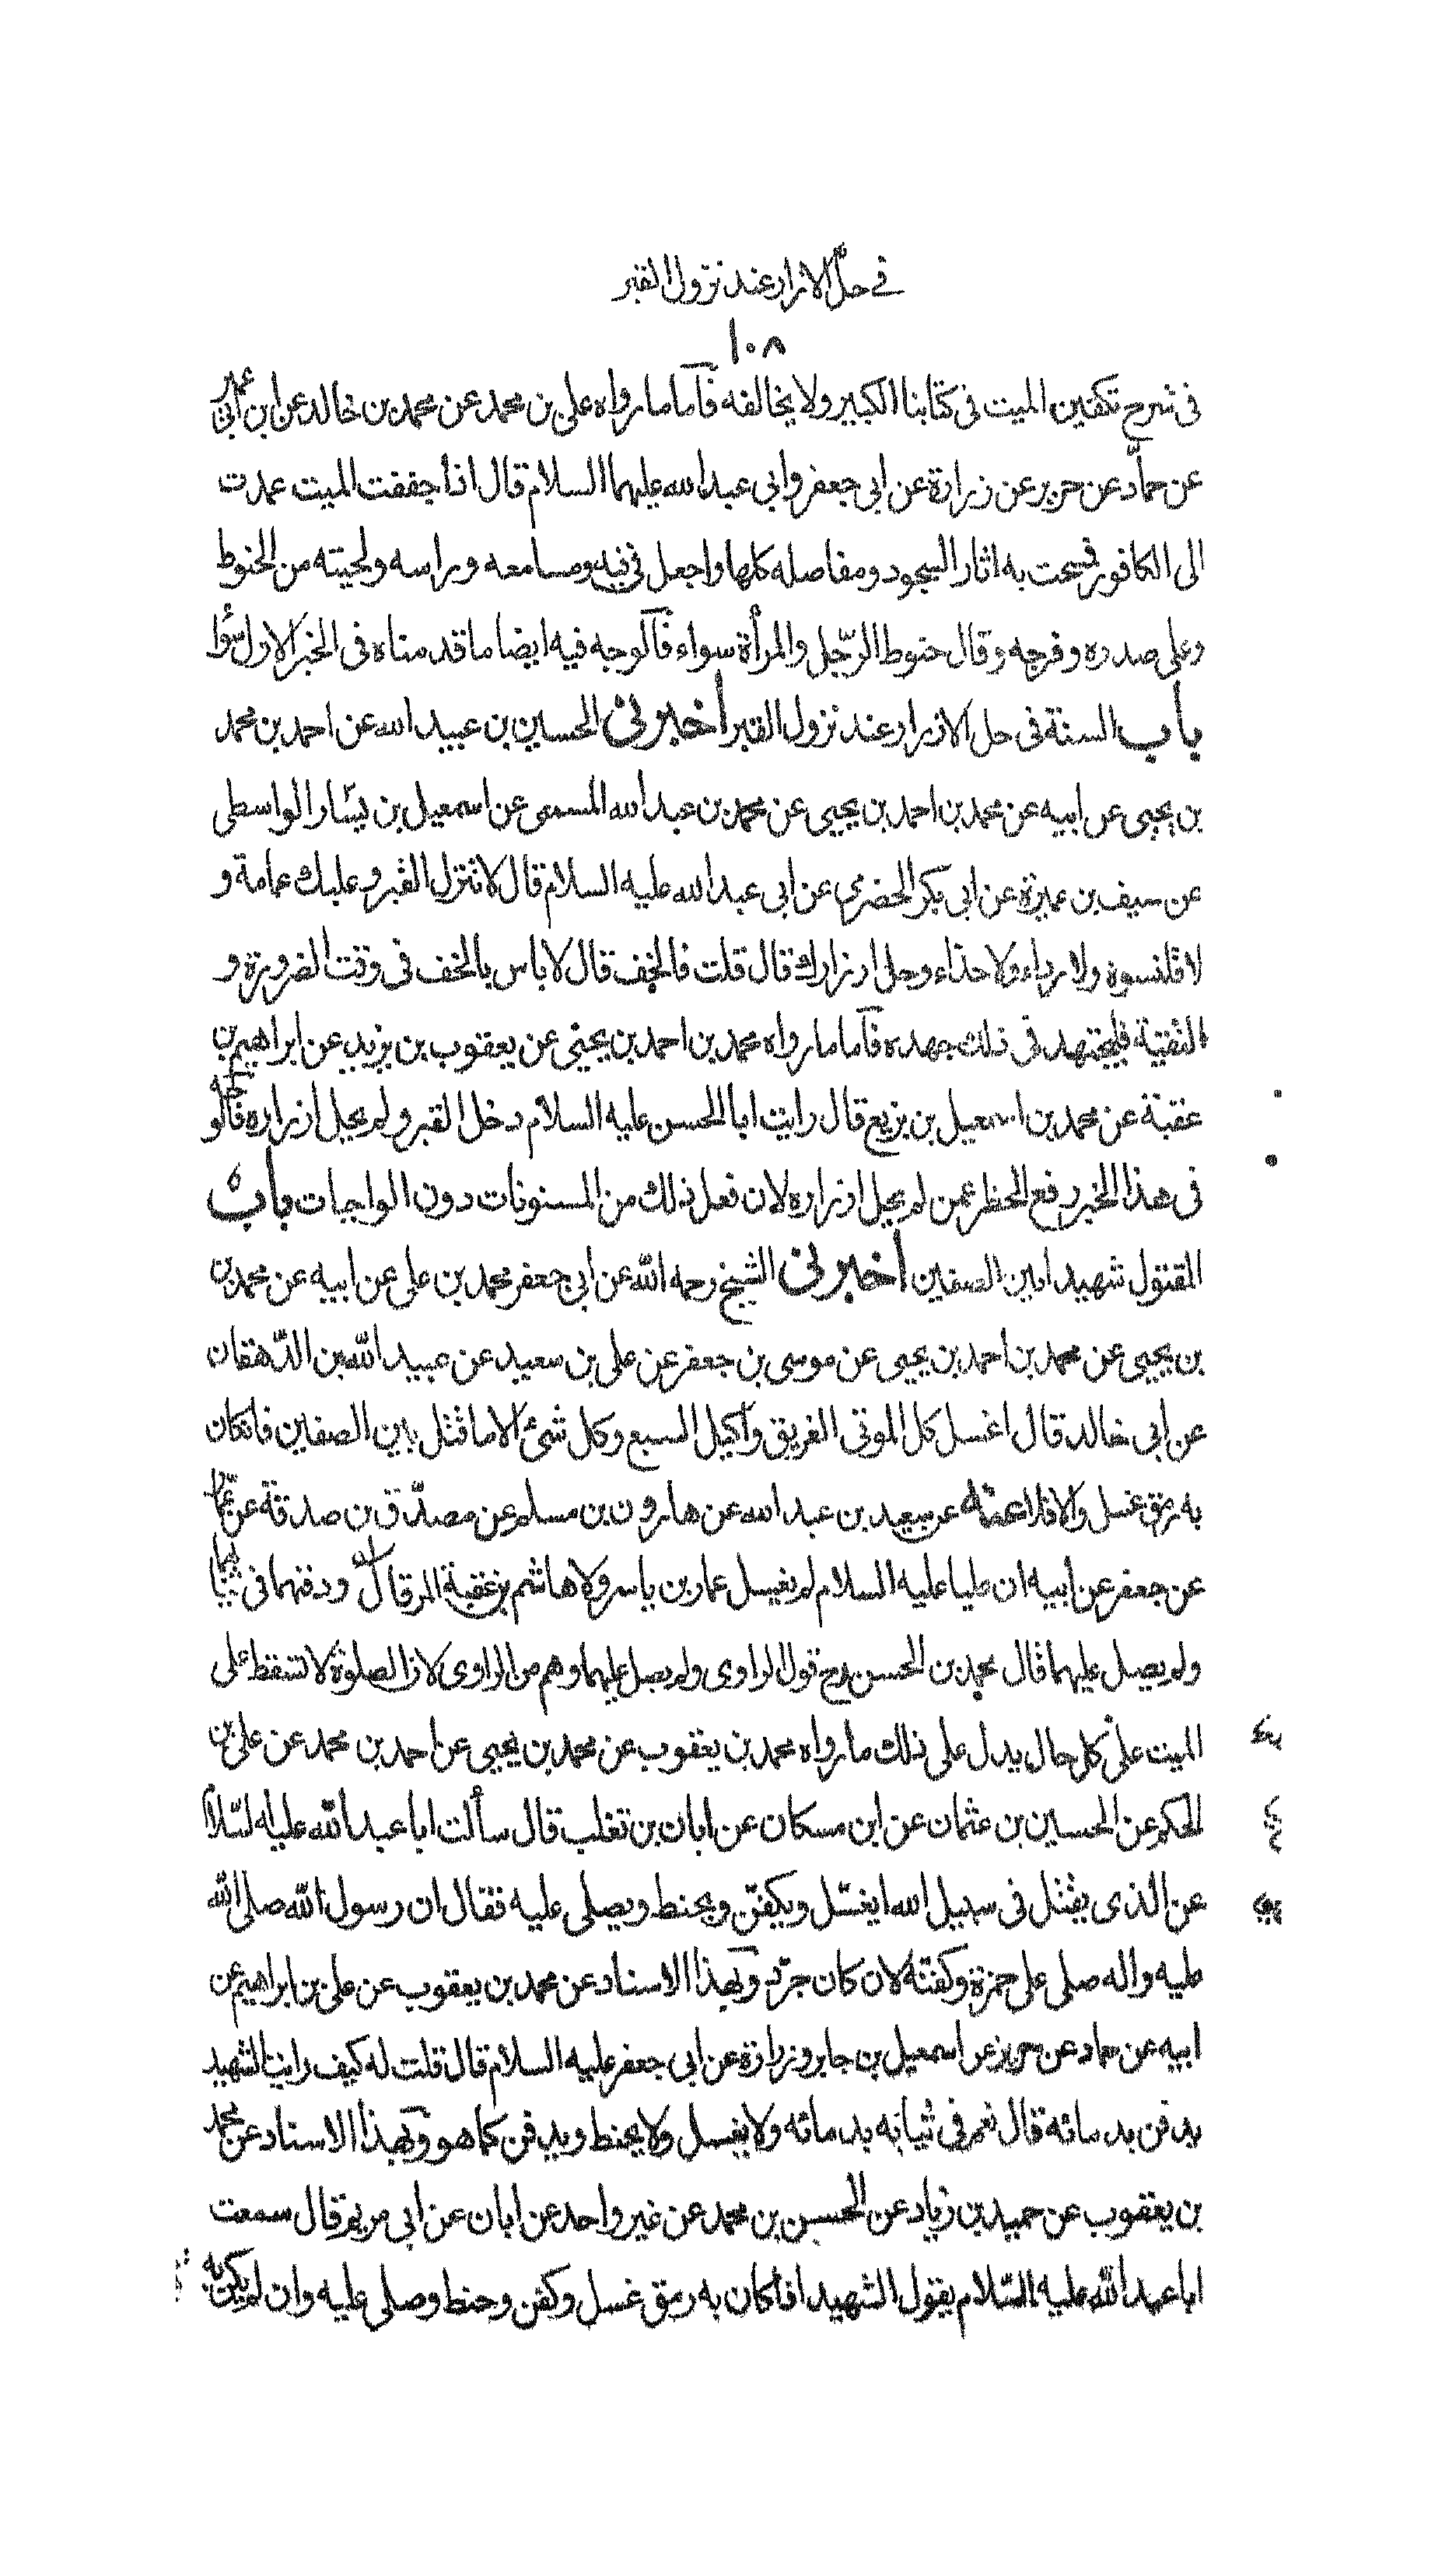 في حلّ الازرار عند نزول القبر
١٠٨
فى شرح تكفين الميت فى كتابنا الكبير ولا يخالفه فآما ما رواه على بن محمد عن محمد بن خالد عن ابن أبي عمير
عن حمّاد عن حريز عن زرارة عن ابى جعفر وابى عبد الله عليهما السلام قال اذا جففت الميت عمدت
الى الكافور فمسحت به اثار السجود ومفاصله كلها واجعل فى فيه ومسامعه وراسه ولحيته من الحنوط
وعلى صدره وفرجه وقال حنوط الرّجل والمرأة سواء فآلوجه فيه ايضا ما قدمناه فى الخبر الاول سؤا
باب السنة فى حل الازرار عند نزول القبر أخبرنى الحسين بن عبيد الله عن احمد بن محمد
بن يحيى عن ابيه عن محمد بن احمد بن يحيى عن محمد بن عبد الله المسمعى عن اسمعيل بن يسّار الواسطى
عن سيف بن عميرة عن ابى بكر الحضرمى عن ابى عبد الله عليه السلام قال لا تنزل القبر وعليك عمامة و
لا قلنسوة ولا رداء ولا حذاء وحل ازرارك قال قلت فالخف قال لا باس بالخف فى وقت الضرورة و
التقية فليجتهد فى ذلك جهده فآما ما رواه محمد بن احمد بن يحيى عن يعقوب بن يزيد عن ابراهيم بن
عقبة عن محمد بن اسمعيل بن بزيع قال رايت ابا الحسن عليه السلام دخل القبر ولم يحل ازراره فآلوجه
فى هذا الخبر رفع الحظر عمن لم يحل ازراره لان فعل ذلك من المسنونات دون الواجبات باب
المقتول شهيدا بين الصفين أخبرنى الشيخ رحمه الله عن ابى جعفر محمد بن على عن ابيه عن محمد بن
بن يحيى عن محمد بن احمد بن يحيى عن موسى بن جعفر عن على بن سعيد عن عبيد الله بن الدّهقان
عن أبى خالد قال اغسل كل الموتى الغريق وأكيل السبع وكل شئ الا ما قتل بين الصفين فان كان
به رمق غسل والا فلا عنه عن سعيد بن عبد الله عن هارون بن مسلم عن مصدّق بن صدقة عن عمّار
عن جعفر عن ابيه ان عليا عليه السلام لم يغسل عمار بن ياسر ولا هاشم بن عقبة المرقال ودفنهما فى ثيابهما
ولم يصل عليهما قال محمد بن الحسن رح قول الراوى ولم يصل عليهما وهم من الراوى لان الصلوة لا تسقط على
الميت على كل حال يدل على ذلك ما رواه محمد بن يعقوب عن محمد بن يحيى عن احمد بن محمد عن على بن
الحكم عن الحسين بن عثمان عن ابن مسكان عن ابان بن تغلب قال سألت ابا عبد الله عليه السّلام
عن الذى يقتل فى سبيل الله ايغسّل ويكفّن ويحنط ويصلى عليه فقال ان رسول الله صلى الله
عليه واله صلى على حمزة وكفنّه لان كان جرّد وبهذا الاسناد عن محمد بن يعقوب عن على بن ابراهيم عن
ابيه عن حماد عن حريز عن اسمعيل بن جابر وزرارة عن ابى جعفر عليه السلام قال قلت له كيف رايت الشهيد
يدفن بدمائه قال نعم فى ثيابه بدمائه ولا يغسل ولا يحنط ويدفن كما هو وبهذا الاسناد عن محمد
بن يعقوب عن حميد بن زياد عن الحسن بن محمد عن غير واحد عن ابان عن ابى مريم قال سمعت
ابا عبد الله عليه السّلام يقول الشهيد اذا كان به رمق غسل وكفن وحنط وصلى عليه وان لم يكن به